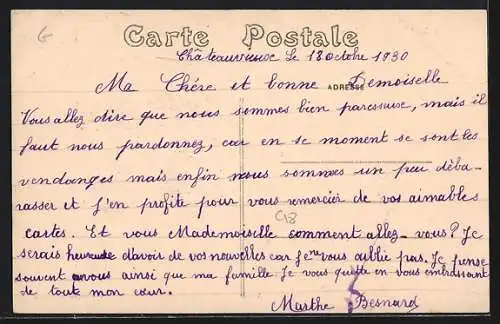 G
Carte Postale
Châteauvieux Le 18 octobre 1930
Ma Chère et bonne Demoiselle
ADRESSE
Vous allez dire que nous sommes bien paresseuse, mais il
faut nous pardonnez, car en se moment se sont les
vendanges mais enfin nous sommes un peu déba-
rasser et j'en profite pour vous remercier de vos aimables
cartes. Et vous Mademoiselle comment allez-vous? Je
serais heureuse d'avoir de vos nouvelles car je ne vous oublie pas. Je pense
souvent a vous ainsi que ma famille. Je vous quitte en vous embrassant
de tout mon cœur.
Marthe Besnard